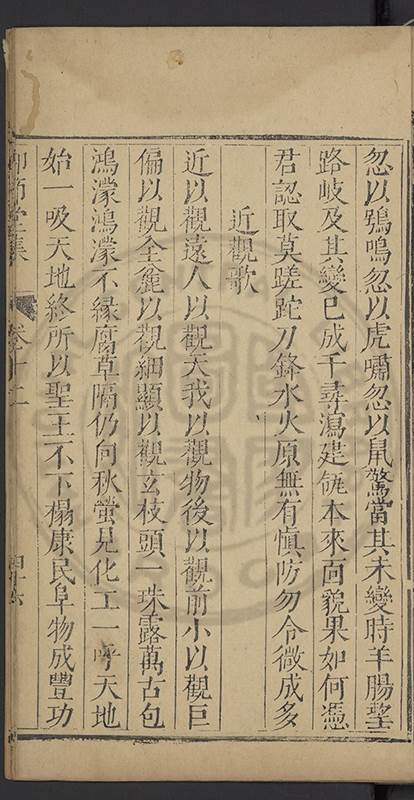 忽以鴞鳴忽以虎嘯忽以鼠驚當其未變時羊腸塹
路岐及其變已成千尋瀉建瓴本來面貌果如何憑
君認取莫蹉跎刀鋒水火原無有慎防勿令微成多
近觀歌
近以觀遠人以觀天我以觀物後以觀前小以觀巨
偏以觀全麄以觀細顯以觀玄枝頭一珠露萬古包
鴻濛鴻濛不緣腐草隔仍向秋螢見化工一呼天地
始一吸天地終所以聖王不下榻康民阜物成豐功
卷十二
四十六